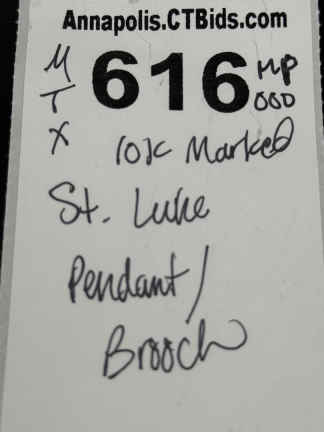 Annapolis.CTBids.com
M 616 MP
T 000
X 10K Marked
St. Luke
Pendant/
Brooch